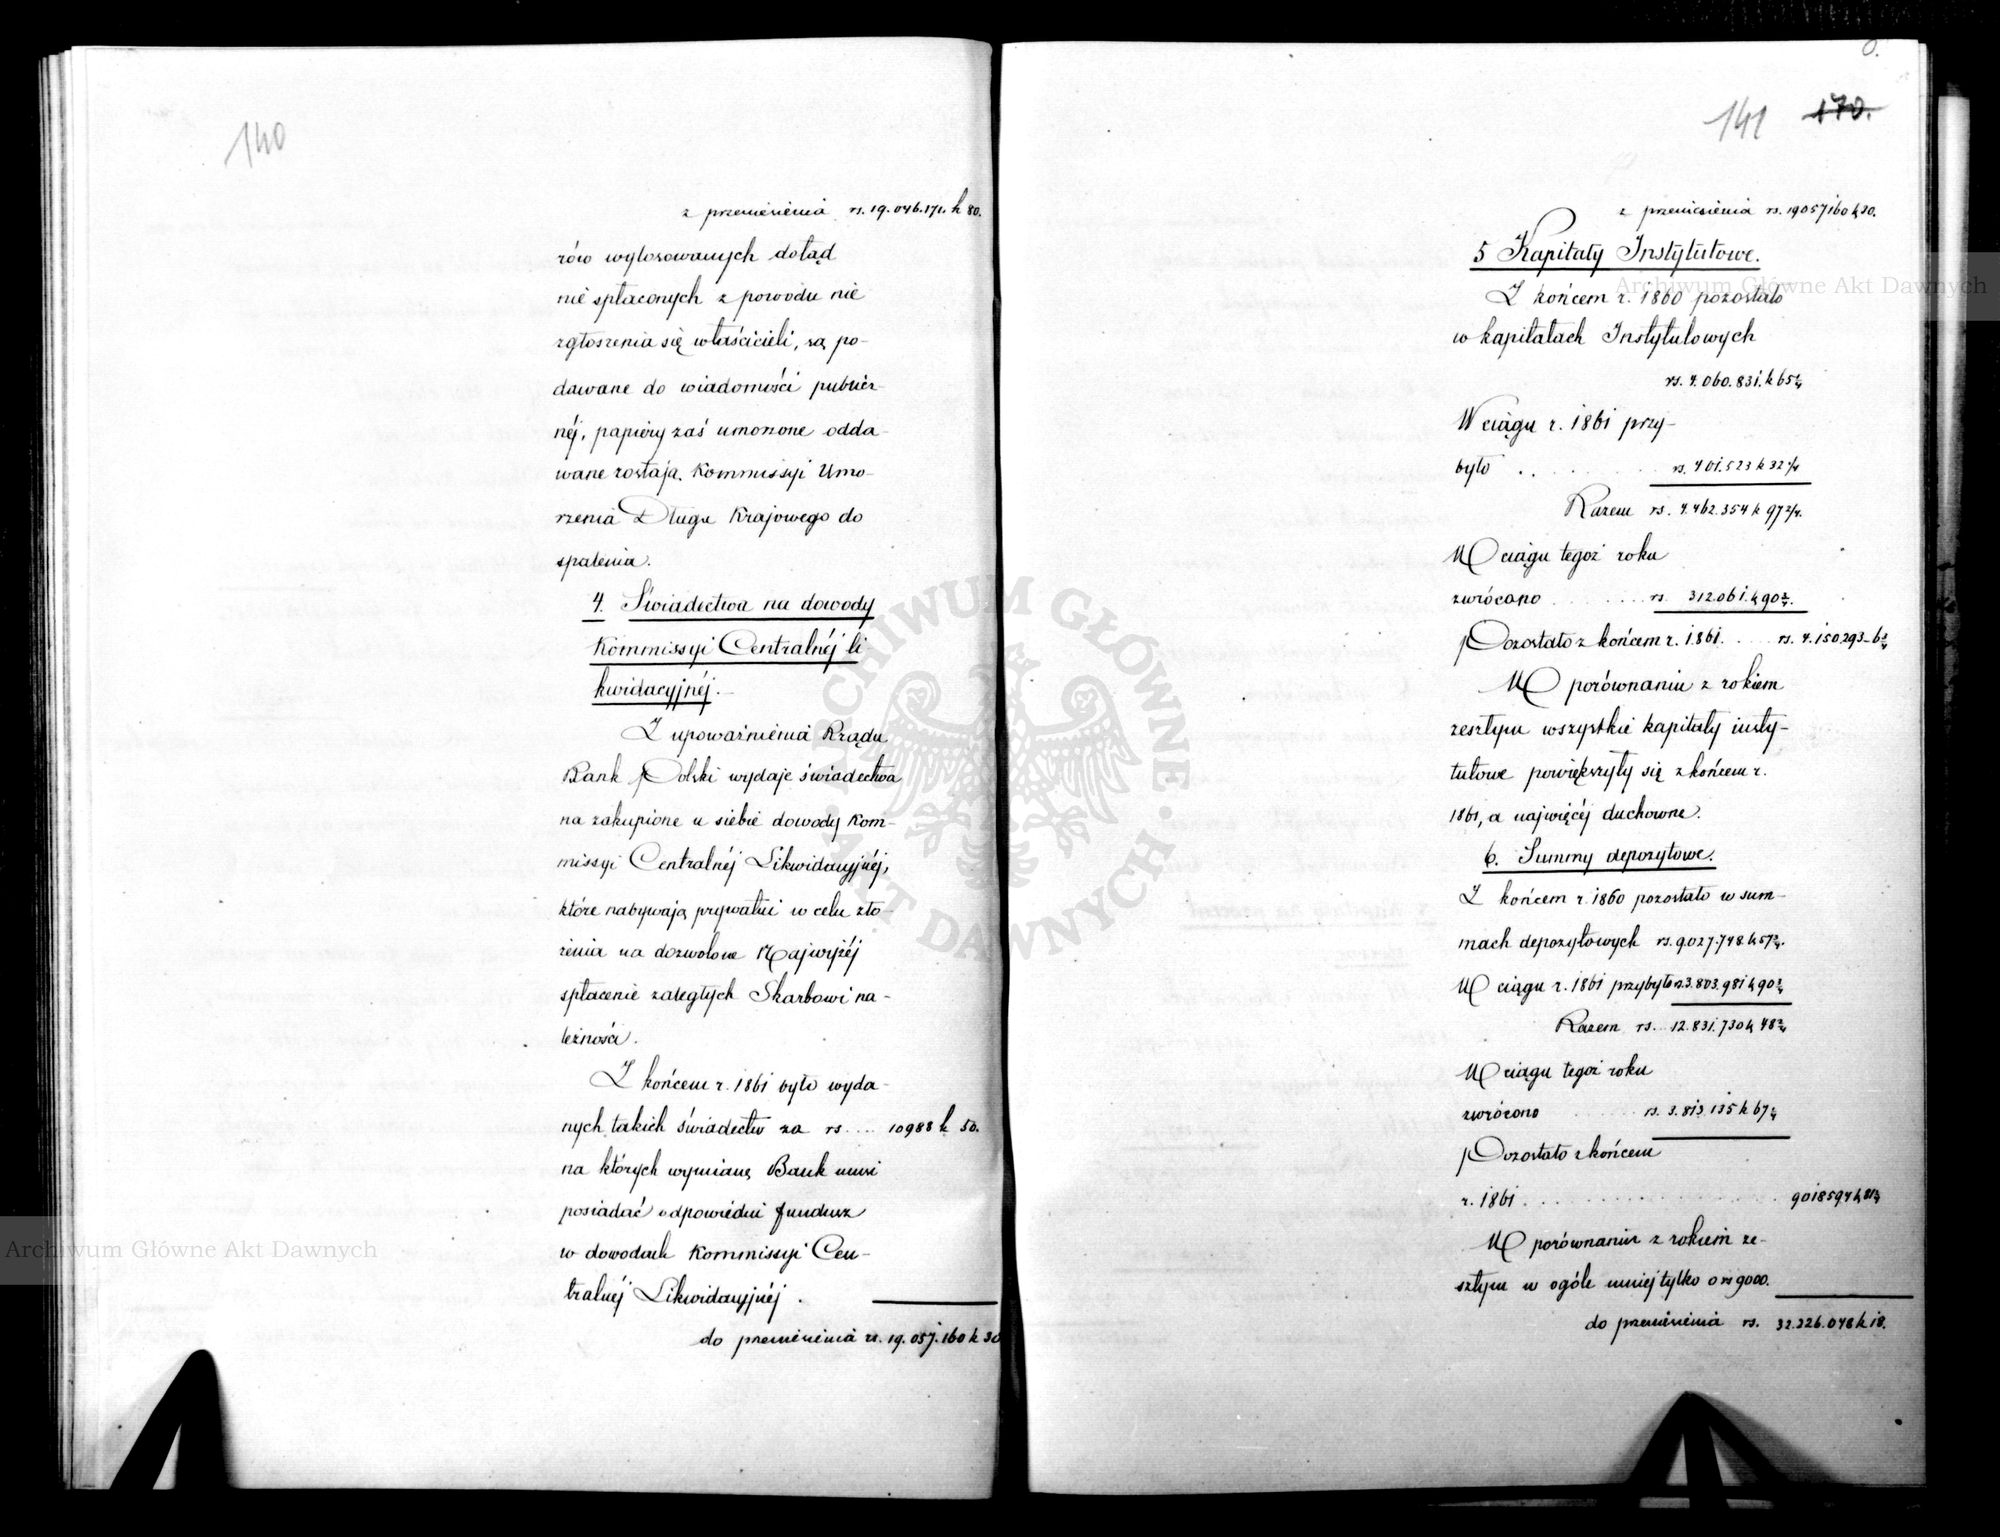 140
z przeniesienia rs. 19.046.171. k 80.
rów wylosowanych dotąd
nie spłaconych z powodu nie
zgłoszenia się właścicieli, są po-
dawane do wiadomości publicz-
néj, papiéry zaś umorzone odda-
wane zostają Kommissyi Umo-
rzenia Długu Krajowego do
spalenia.
4. Świadectwa na dowody
Kommissyi Centralnéj li-
kwidacyjnéj.-
Z upoważnienia Rządu
Bank Polski wydaje świadectwa
na zakupione u siebie dowody Kom-
missyi Centralnéj Likwidacyjnéj,
które nabywają prywatni w celu zło-
żenia na dozwolone Najwyżéj
spłacenie zaległych Skarbowi na-
leżności.
Z końcem r. 1861 było wyda-
nych takich świadectw za rs .... 10988 k 50.
na których wymianę Bank musi
posiadać odpowiedni fundusz
w dowodach Kommissyi Cen-
tralnéj Likwidacyjnéj.
do przeniesienia rs. 19.057.160 k 30
0.
141 170.
z przeniesienia rs. 19057160 k 30.
5 Kapitały Instytutowe.
Z końcem r. 1860 pozostało
w kapitałach Instytutowych
rs. 4.060.831. k 65 2/4
W ciągu r. 1861 przy-
było . . . . . rs. 401.523 k 32 1/4
Razem rs. 4.462.354 k 97 3/4.
W ciągu tegoż roku
zwrócono . . . . . rs. 312.061. k 90 2/4.
Pozostało z końcem r. 1861. . . . rs. 4.150.293-6 3/4
W porównaniu z rokiem
zeszłym wszystkie kapitały insty-
tutowe powiększyły się z końcem r.
1861, a najwięcéj duchowne.
6. Summy depozytowe.
Z końcem r. 1860 pozostało w sum-
mach depozytowych rs. 9.027.748. k 57 3/4.
W ciągu r. 1861 przybyło rs. 3.803.981 k 90 3/4
Razem rs. 12.831.730 k 48 2/4
W ciągu tegoż roku
zwrócono . . . . . rs. 3.813.135 k 67 1/4
Pozostało z końcem
r. 1861 . . . . . . . . . . 9018594 k 81 1/4
W porównaniu z rokiem ze-
szłym w ogóle mniej tylko o rs 9000.
do przeniesienia rs. 32.226.048 k 18.
Archiwum Główne Akt Dawnych
Archiwum Główne Akt Dawnych
ARCHIWUM GŁÓWNE · AKT DAWNYCH ·